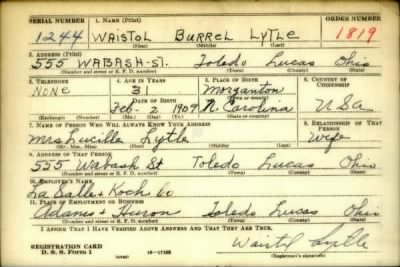 SERIAL NUMBER 1. NAME (Print) ORDER NUMBER
1244 WAISTOL BURREL LYTLE 1819
(First) (Middle) (Last)
2. ADDRESS (Print)
555 WABASH-ST. Toledo Lucas Ohio
(Number and street or R. F. D. number) (Town) (County) (State)
3. TELEPHONE 4. AGE IN YEARS 5. PLACE OF BIRTH 6. COUNTRY OF CITIZENSHIP
NONE 31 Morganton
DATE OF BIRTH
Feb. 2, 1909 N. Carolina USA
(Exchange) (Number) (Mo.) (Day) (Yr.) (State or country)
7. NAME OF PERSON WHO WILL ALWAYS KNOW YOUR ADDRESS 8. RELATIONSHIP OF THAT PERSON
Mrs Lucille Lytle Wife
(Mr., Mrs., Miss) (First) (Middle) (Last)
9. ADDRESS OF THAT PERSON
555 Wabash St Toledo Lucas Ohio
(Number and street or R. F. D. number) (Town) (County) (State)
10. EMPLOYER'S NAME
La Salle & Koch Co
11. PLACE OF EMPLOYMENT OR BUSINESS
Adams & Huron Toledo Lucas Ohio
(Number and street or R. F. D. number) (Town) (County) (State)
I AFFIRM THAT I HAVE VERIFIED ABOVE ANSWERS AND THAT THEY ARE TRUE.
REGISTRATION CARD
D. S. S. Form 1 (over) 16-17105 Waistol Lytle
(Registrant's signature)